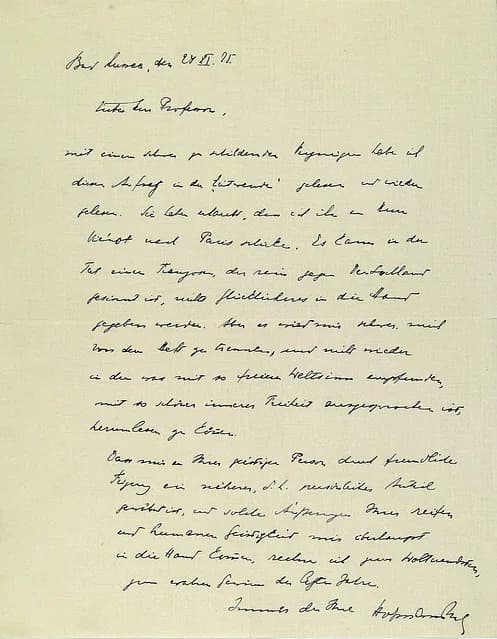 Bad Aussee, den 24 VI. 25.
Lieber Herr Professor,
mit einem schwer zu schildernden Vergnügen habe ich
diesen Aufsatz in der gelesen und wieder
gelesen. Sie haben erlaubt, dass ich ihn an
nach Paris schicke. Es kann in der
Tat einem Franzosen, der rein gegen Deutschland
gesinnt ist, nichts Glücklicheres in die Hand
gegeben werden. Aber es wird mir schwer, mich
von dem Heft zu trennen, und nicht wieder
in dem was mit so freiem Weltsinn empfunden,
mit so schöner innerer Freiheit ausgesprochen ist,
herumlesen zu können.
Dass mir an Ihrer geistigen Person durch freundliche
Fügung ein näherer, d.h. persönlicher Anteil
gewährt ist, und solche Äußerungen Ihrer reifen
und humanen Geistigkeit mir überhaupt
in die Hand kommen, rechne ich zum
zum wahren Gewinn der letzten Jahre.
Immer der Ihre Hofmannsthal